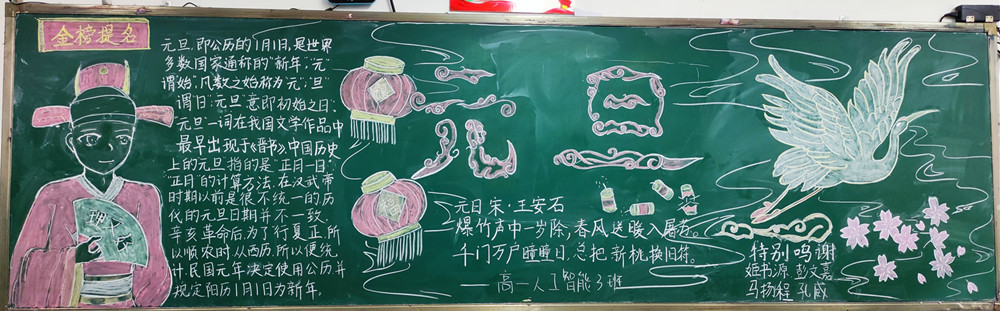 金榜提名
元旦,即公历的1月1日,是世界
多数国家通称的“新年”,“元”
谓始,凡数之始称为“元”;“旦”
谓日;元旦意即初始之日.
元旦一词在我国文学作品中
最早出现于《晋书》中国历史
上的元旦指的是“正月一日”
“正月”的计算方法,在汉武帝
时期以前是很不统一的历
代的元旦日期并不一致.
辛亥革命后为了行夏正,所
以顺农时,从西历,所以便统
计,民国元年决定使用公历并
规定阳历1月1日为新年.
元旦
元日 宋·王安石
爆竹声中一岁除,春风送暖入屠苏。
千门万户曈曈日,总把新桃换旧符。
——高一人工智能3班
特别鸣谢
姬书源 彭文嘉
马扬程 孔威